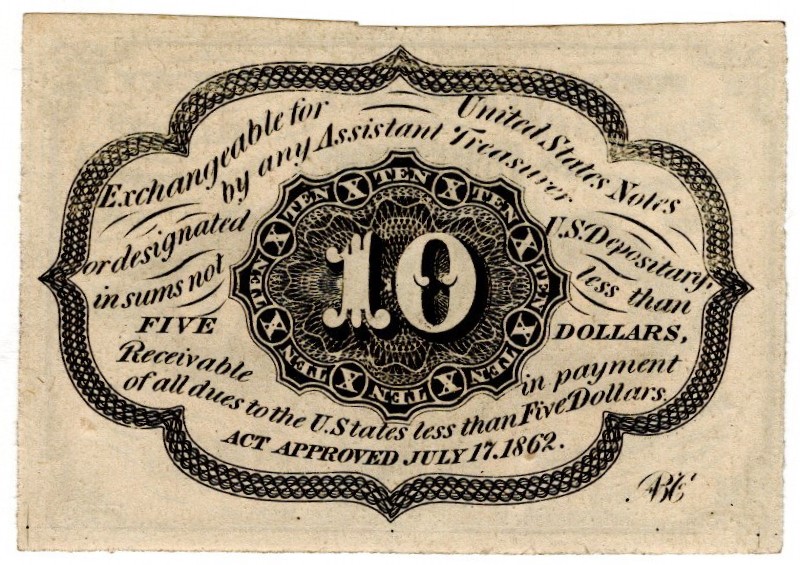 Exchangeable for United States Notes
by any Assistant Treasurer
or designated U.S. Depositary,
in sums not less than
FIVE DOLLARS,
Receivable in payment
of all dues to the U. States less than Five Dollars.
ACT APPROVED JULY 17. 1862.
TEN X TEN X TEN X TEN X TEN X TEN X TEN X TEN X
10